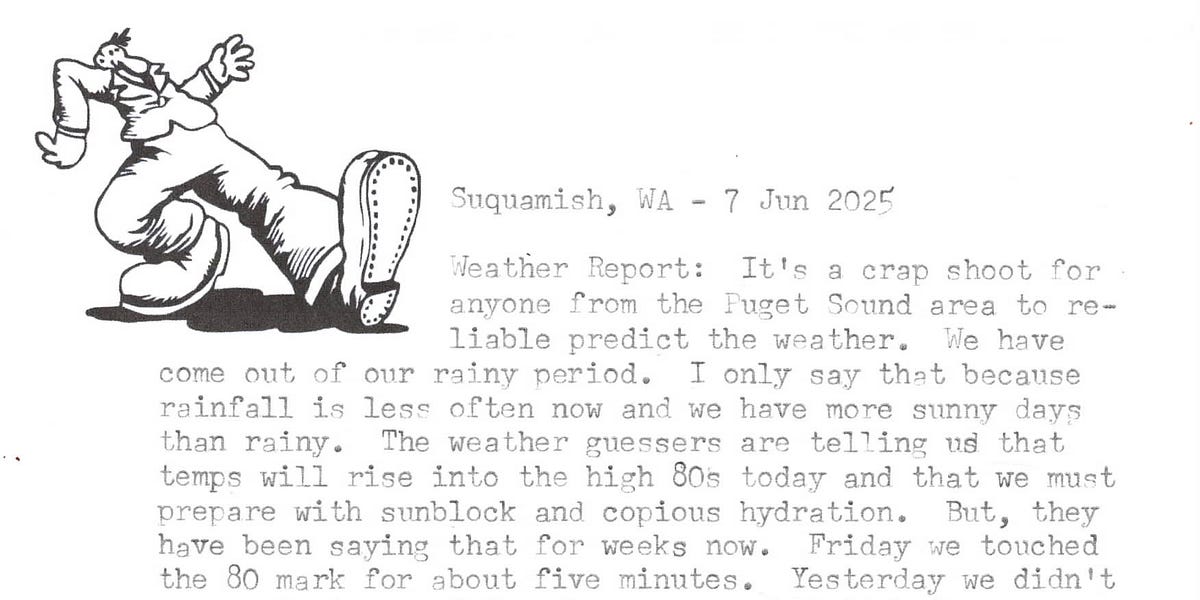 Suquamish, WA - 7 Jun 2025
Weather Report:  It's a crap shoot for
anyone from the Puget Sound area to re-
liable predict the weather.  We have
come out of our rainy period.  I only say that because
rainfall is less often now and we have more sunny days
than rainy.  The weather guessers are telling us that
temps will rise into the high 80s today and that we must
prepare with sunblock and copious hydration.  But, they
have been saying that for weeks now.  Friday we touched
the 80 mark for about five minutes.  Yesterday we didn't